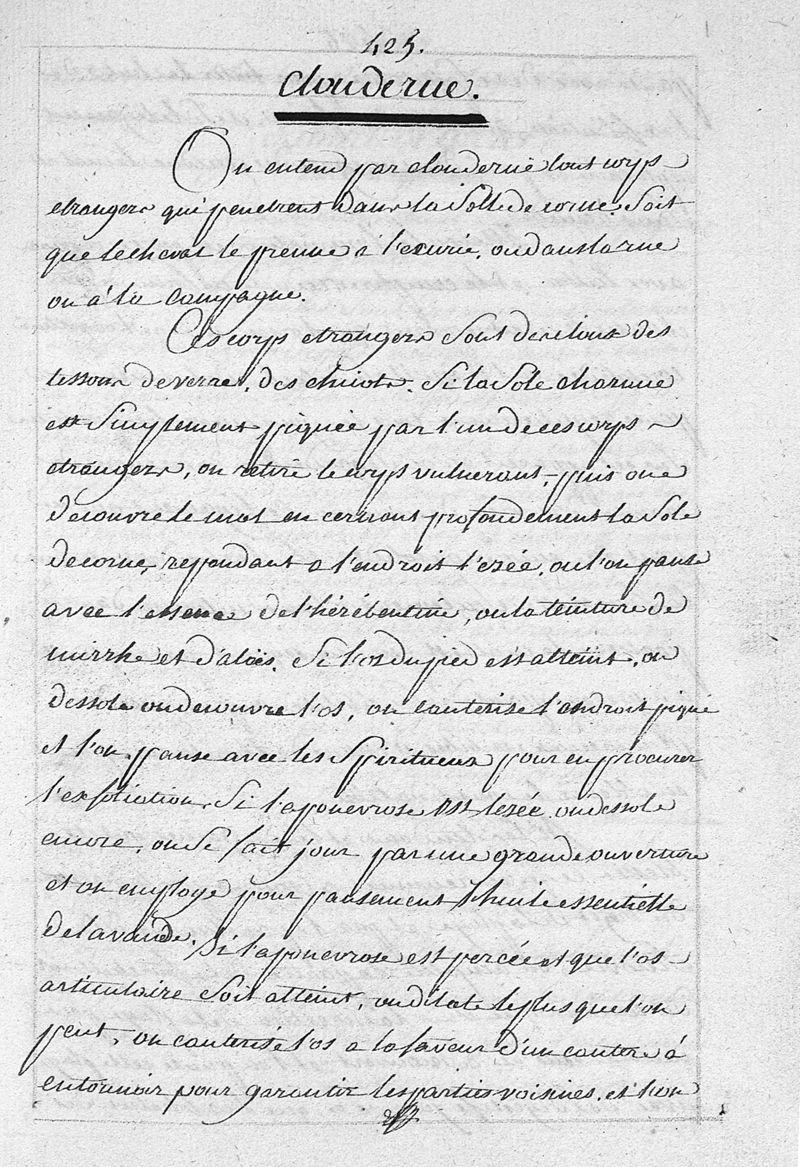 425.
Clouderue.
On entend par clouderue tout corps
etrangers qui penetrent dans la Solle de corne. Soit
que le cheval le prenne a l'ecurie, ou dans la rue
ou à la campagne.
Ces corps etrangers Sont des clous des
tessons de verre, des chicots. Si la Sole charnue
est Simplement piquée par l'un de ces corps
etrangers, on retire le corps vulnerant, puis on
decouvre le mal en cernant profondement la Sole
de corne, repondant a l'endroit lezée, ou l'on panse
avec l'essence de thérébentine, ou la teinture de
mirrhe et d'aloës. Si l'os du pied est atteint, on
dessole on decouvre l'os, on cauterise l'endroit piqué
et l'on panse avec les Spiritueux pour en procurer
l'exfoliation. Si l'aponevrose est lezée, on dessole
encore, on Se fait jour par une grande ouverture
et on employe pour pansement l'huile essentielle
de lavande. Si l'aponevrose est percée et que l'os
articulaire Soit atteint, on dilate le plus que l'on
peut, on cauterise l'os a la faveur d'un cautere à
entonnoir pour garantir les parties voisines, et l'on